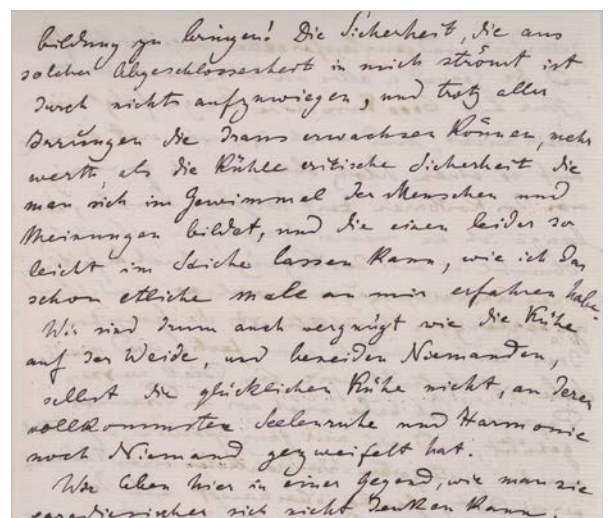 bildung zu bringen! Die Sicherheit, die aus
solcher Abgeschlossenheit in mich strömt ist
durch nichts aufzuwiegen, und trotz aller
Irrungen die draus erwachsen können, mehr
werth, als die kühle critische Sicherheit die
man sich im Gewimmel der Menschen und
Meinungen bildet, und die einen leider so
leicht im Stiche lassen kann, wie ich das
schon etliche male an mir erfahren habe.
Wir sind drum auch vergnügt wie die Kühe
auf der Weide, und beneiden Niemanden,
selbst die glücklichen Kühe nicht, an deren
vollkommster Seelenruhe und Harmonie
noch Niemand gezweifelt hat.
Wir leben hier in einer Gegend, wie man sie
paradiesischer sich nicht denken kann.